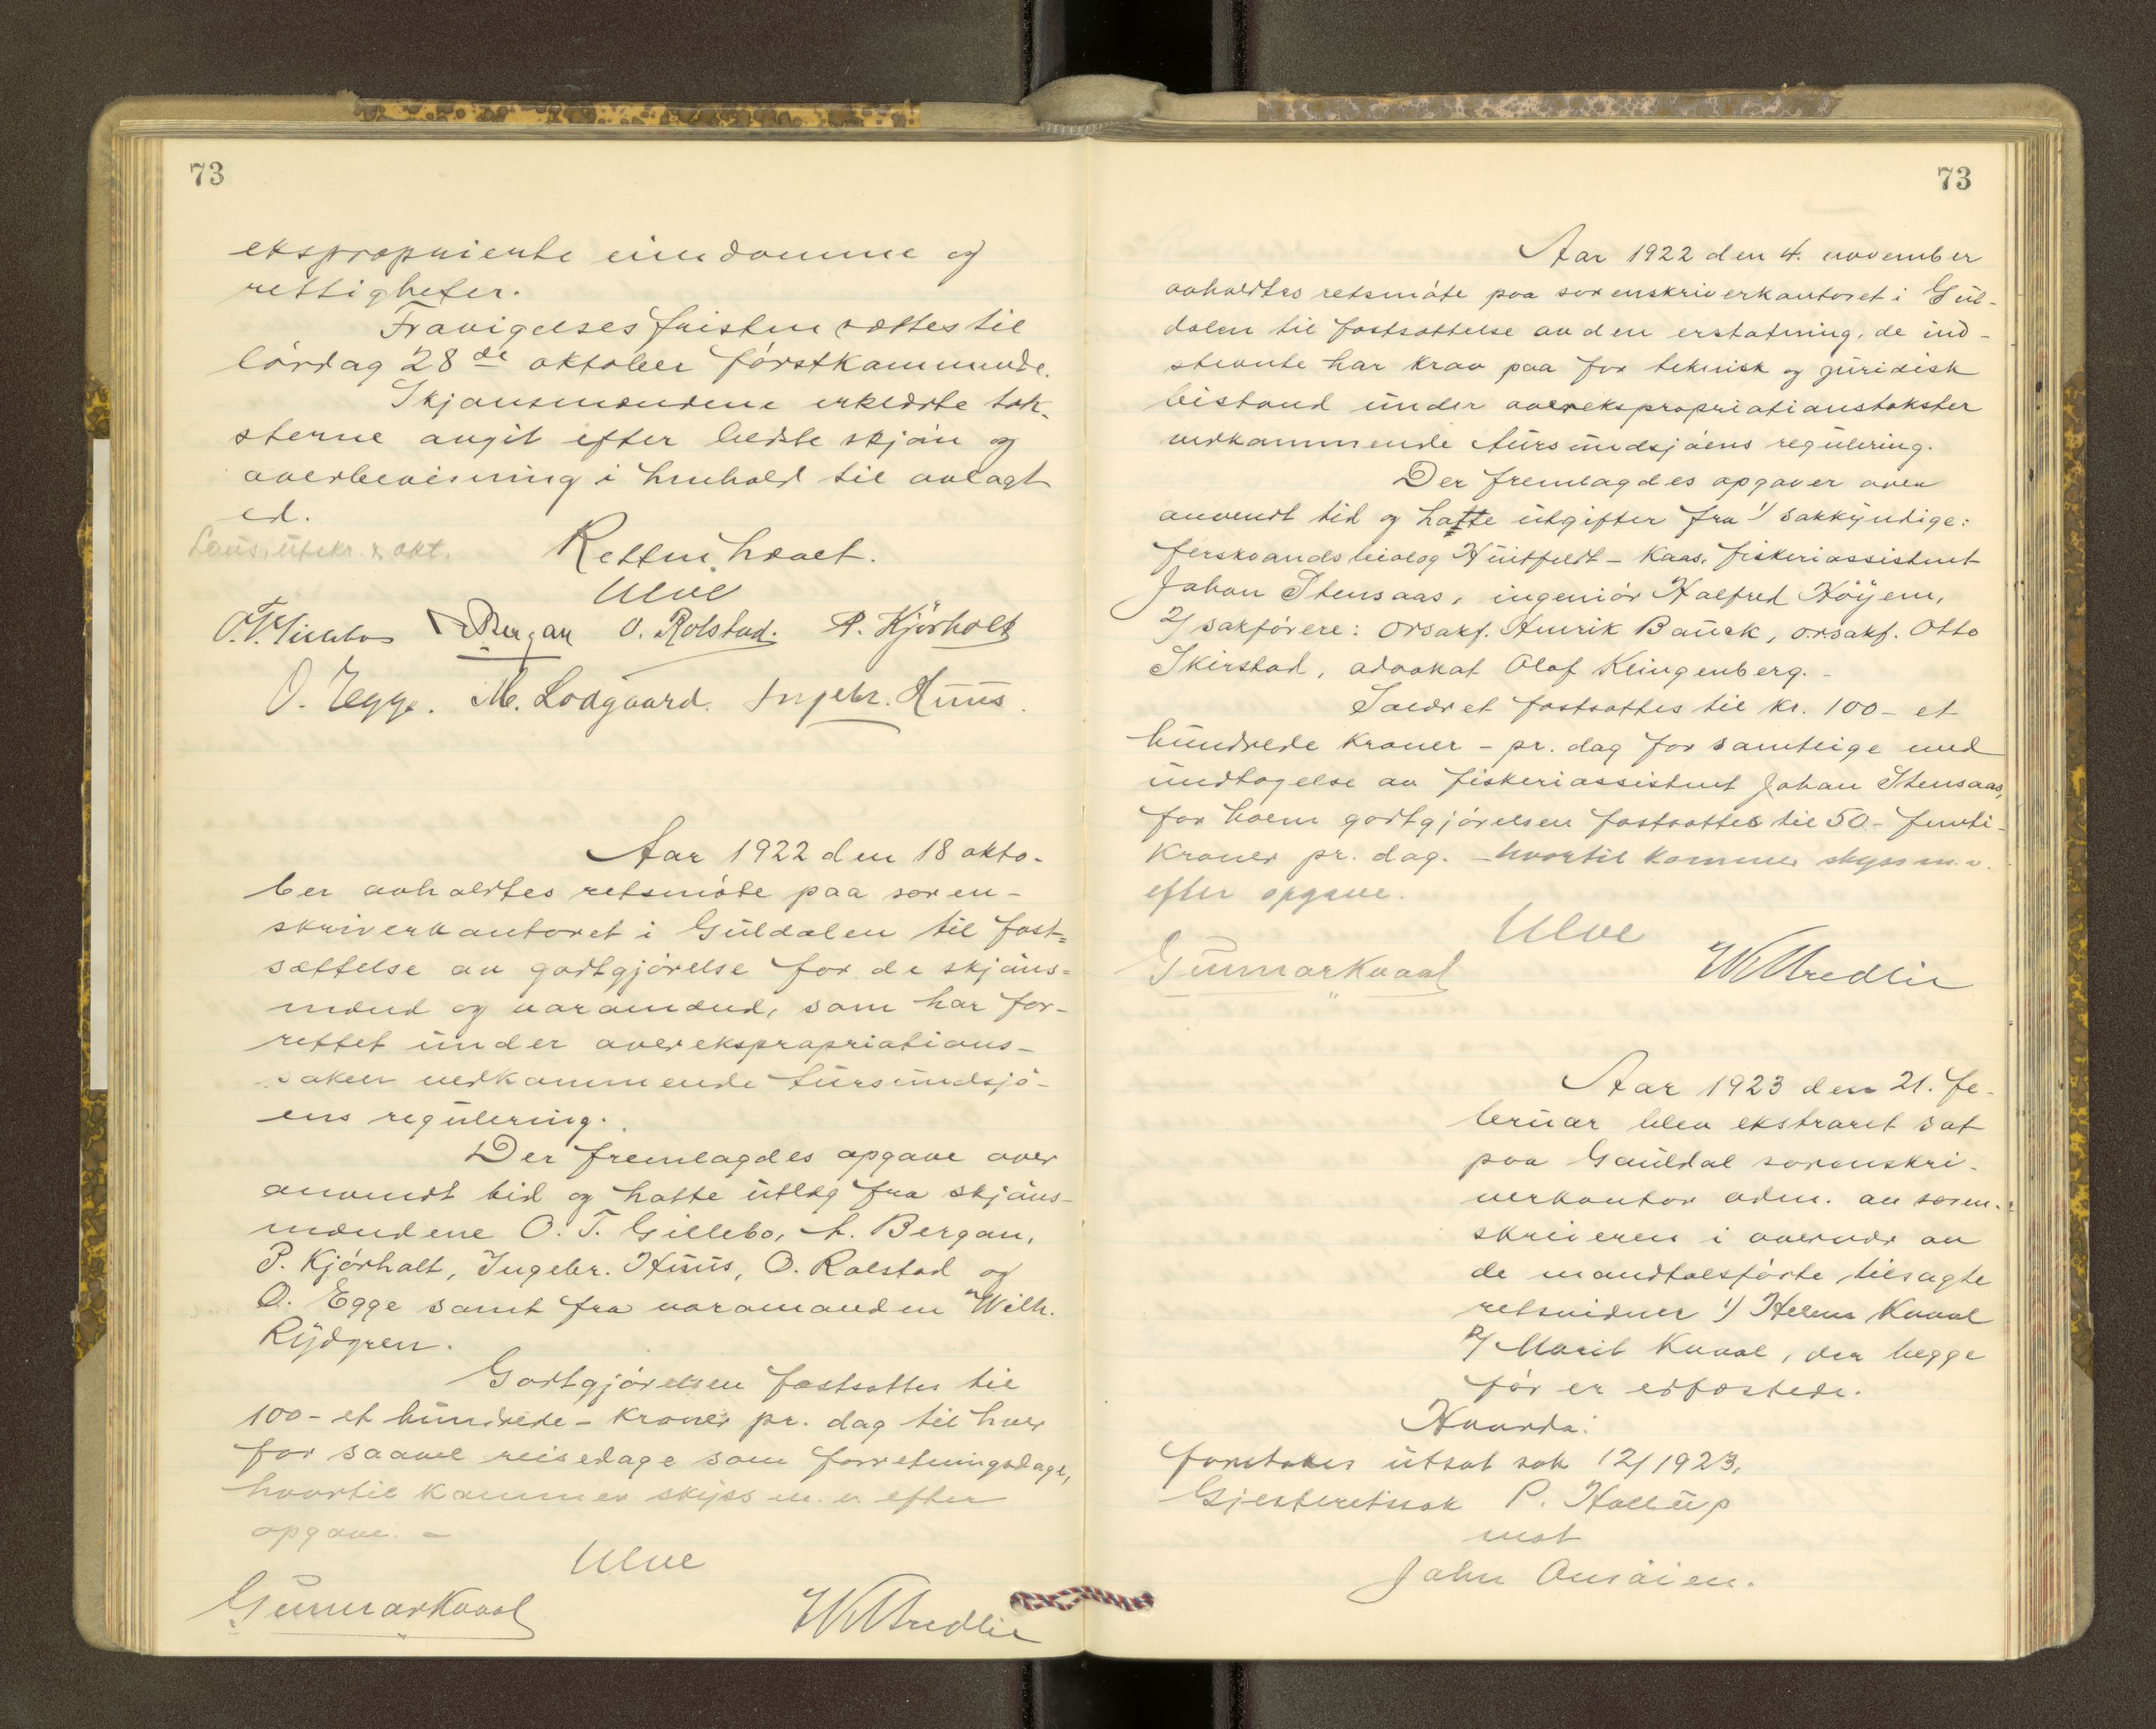 73
eksproprierte eiendomme og
rettigheter.
Fravigelsesfristen sættes til
lördag 28de oktober förstkommende.
Skjönsmændene erklærte tak-
sterne avgit efter bedste skjön og
overbevisning i henhold til avlagt
ed.
utskr. okt.
Retten hævet.
Ulve
Bergan O. Rolstad. P. Kjörholt
O. Egge. M. Lodgaard. Ingebr. Huus.
Aar 1922 den 18 okto-
ber avholdtes retsmöte paa soren-
skriverkontoret i Guldalen til fast=
sættelse av godtgjörelse for de skjöns=
mænd og varamænd, som har for-
rettet under overekspropriations-
saken vedkommende Aursundsjö-
ens regulering.
Der fremlagdes opgave over
anvendt tid og hatte utlæg fra skjöns-
mændene O. T. Gillebo, A. Bergan,
P. Kjörholt, Ingebr. Huus, O. Rolstad og
O. Egge samt fra varamanden Wilh.
Rydgren.
Godtgjörelsen fastsattes til
100 - et hundrede - kroner pr. dag til hver
for saavel reisedage som forretningsdage,
hvortil kommer skyss m. v. efter
opgave. -
Ulve
Gunnar Kvaal
73
Aar 1922 den 4. november
avholdtes retsmöte paa sorenskriverkontoret i Gul-
dalen til fastsættelse av den erstatning, de ind-
stevnte har krav paa for teknisk og juridisk
bistand under overekspropriationstakster
vedkommende Aursundsjöens regulering.
Der fremlagdes opgaver over
anvendt tid og hatte utgifter fra 1/ sakkyndige:
ferskvandsbiolog Huitfeldt - Kaas, fiskeriassistent
Johan Stensaas, ingeniör Halfred Höyem,
2/ sakförere: Orsakf. Henrik Bauck, o.r.sakf. Otto
Skirstad, advokat Olaf Klingenberg. -
Salæret fastsattes til kr. 100 - et
hundrede kroner - pr. dag for samtlige med
undtagelse av fiskeriassistent Johan Stensaas,
for hvem godtgjörelsen fastsattes til 50 - femti -
kroner pr. dag. - hvortil kommer skyss m. v.
efter opgave.
Ulve
Gunnar Kvaal
Aar 1923 den 21. fe-
bruar blev ekstraret sat
paa Gauldal sorenskri-
verkontor adm. av soren-
skriveren i overvær av
de mandtalsförte tilsagte
retsvidner 1/ Helene Kvaal
2/ Marit Kvaal, der begge
för er edfæstede.
Hvorda:
foretokes utsat sak 12/1923,
Gjesteretssak P. Hollup
mot
John